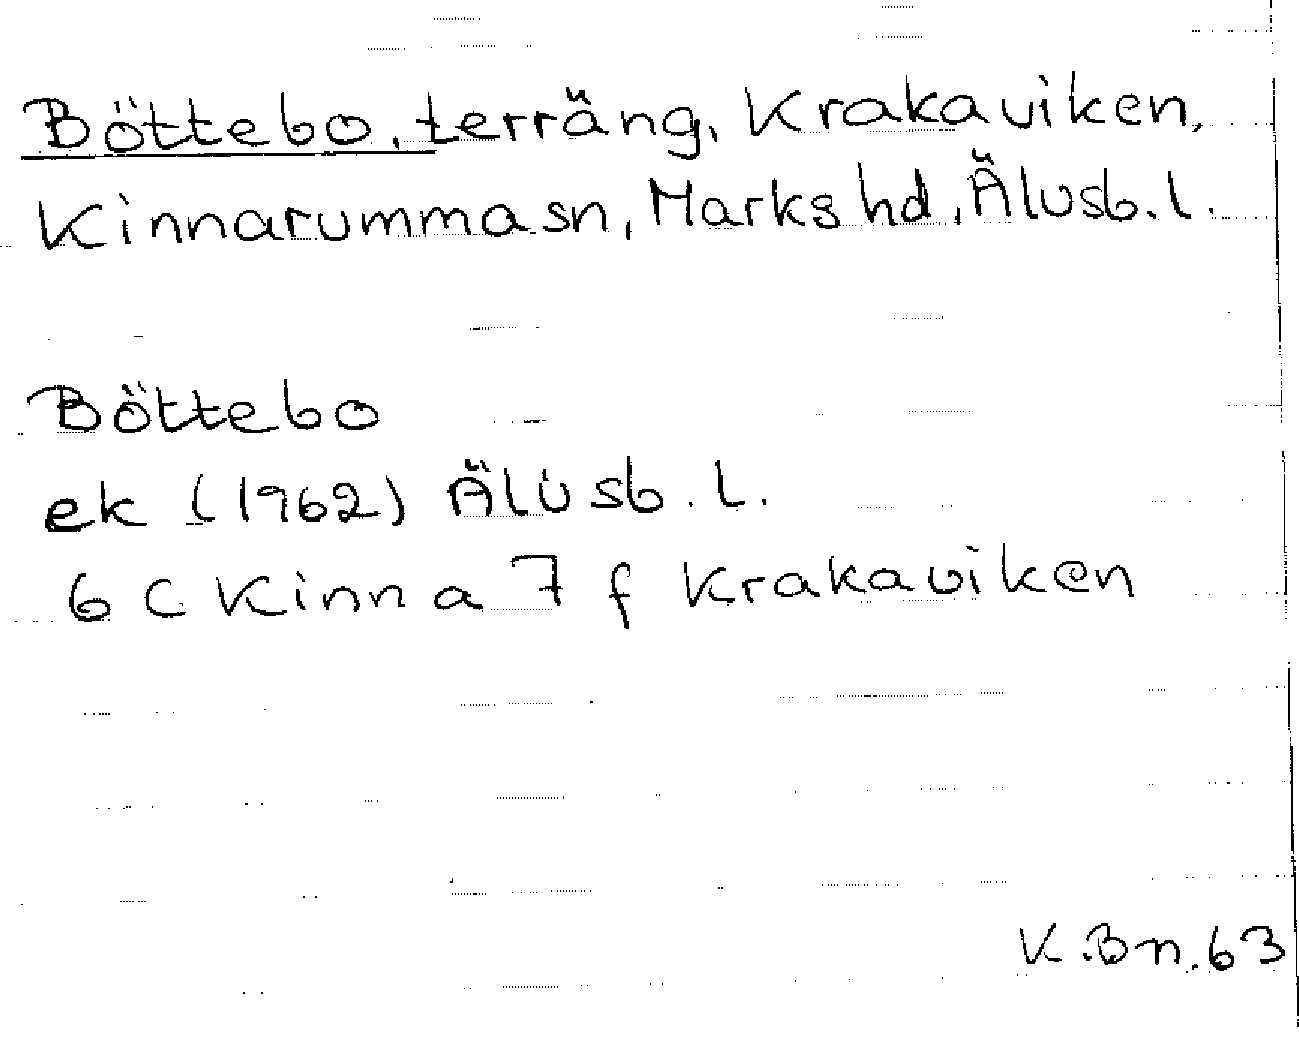 Böttebo, terräng, Krakaviken,
Kinnarumma sn, Marks hd, Älvsb. l.
Böttebo
ek (1962) Älvsb. l.
6 C Kinna 7 f Krakaviken
K.Bn.63